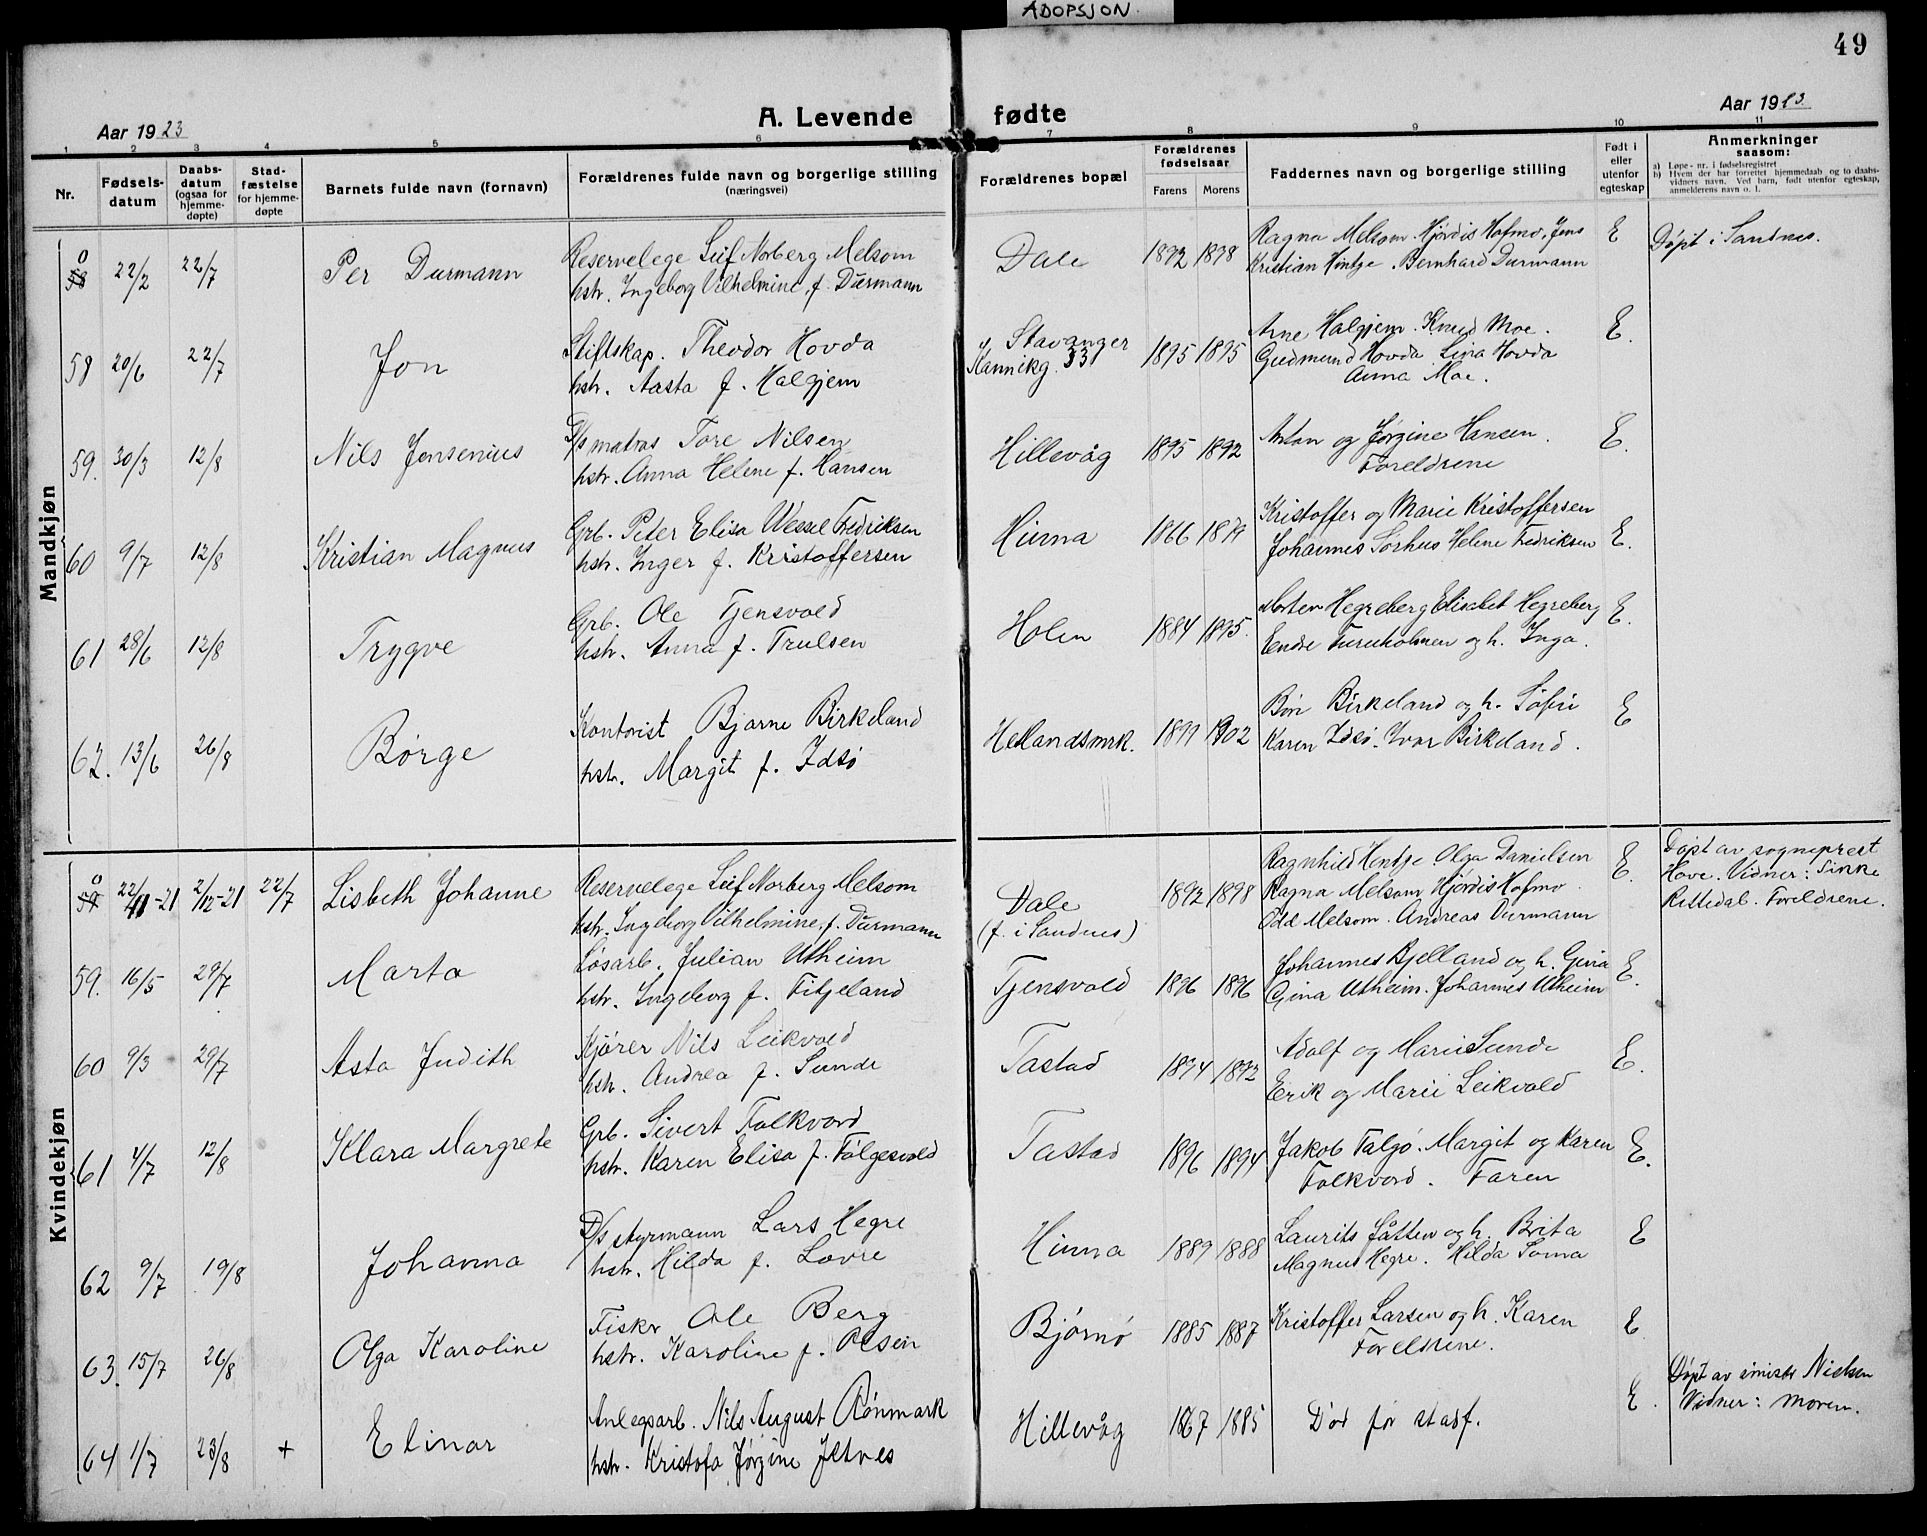 ADOPSJON.
49
Aar 1923
A. Levende fødte
Aar 1923
1 2 3 4 5 6 7 8 9 10 11
Nr.
Fødsels-datum
Daabs-datum (ogsaa for hjemme-døpte)
Stad-fæstelse for hjemme-døpte
Barnets fulde navn (fornavn)
Forældrenes fulde navn og borgerlige stilling (næringsvei)
Forældrenes bopæl
Forældrenes fødselsaar
Farens Morens
Faddernes navn og borgerlige stilling
Født i eller utenfor egteskap
Anmerkninger saasom:
a) Løpe-nr. i fødselsregistret
b) Hvem der har forrettet hjemmedaab og to daabs-vidners navn. Ved barn, født utenfor egteskap, anmelderens navn o. l.
Mandkjøn
0 58 22/2 22/7 Per Durmann
Reservelege Leif Norberg Melsom
hstr. Ingeborg Vilhelmine, f. Durmann
Dale 1892 1898
Ragna Melsom. Hjørdis Hofmo, Jens
Kristian Hentze. Bernhard Durmann
E Døpt i Sandnes.
58 20/6 22/7 Jon
Stiftskap. Theodor Hovda
hstr. Aasta f. Halgjem
Stavanger
Kannikg. 331 1895 1895
Arne Halgjem. Knud Moe.
Gudmund Hovda Lina Hovda
Anna Moe.
E.
59. 30/3 12/8 Nils Jensenius
D/s matros Tore Nilsen
hstr. Anna Helene f. Hansen
Hillevåg 1895 1892
Anton og Jørgine Hansen.
Foreldrene
E.
60 9/7 12/8 Kristian Magnus
Grb. Peter Elisa Wessel Fredriksen
hstr. Inger f. Kristoffersen
Hinna 1866 1879
Kristoffer og Marie Kristoffersen
Johannes Sørhus Helene Fredriksen
E.
61 28/6 12/8 Trygve
Grb. Ole Tjensvold
hstr. Anna f. Trulsen
Holen 1884 1895.
Morten Hegreberg Elisabet Hegreberg
Endre Furuholmen og h. Inga.
E.
62. 13/6 26/8 Børge
Kontorist Bjarne Birkeland
hstr. Margit f. Idsø
Hetlandsmrk. 1899 1902
Birkeland og h. Sofie
Karen Idsø. Ivar Birkeland.
E
Kvindekjøn
0 59 22/11-21 2/12-21 22/7 Lisbeth Johanne
Reservelege Leif Norberg Melsom
hstr. Ingeborg Vilhelmine, f. Durmann
Dale
(f. i Sandnes) 1892 1898
Ragnhild Hentze Olga Danielsen
Ragna Melsom Hjørdis Hofmo
Odd Melsom. Andreas Durmann
E.
Døpt av sogneprest
Hove. Vidner: Sikke
Rettedal. Foreldrene.
59. 16/5 29/7 Marta
Løsarb. Julian Utheim
hstr. Ingeborg f. Fitjeland
Tjensvold 1896 1896
Johannes Bjelland og h. Gina
Gina Utheim. Johannes Utheim
E.
60 9/3 29/7 Asta Judith
Kjører Nils Leikvold
hstr. Andrea f. Sunde
Tastad 1894 1892
Adolf og Marie Sunde
Erik og Marie Leikvold
E.
61 4/7 12/8 Klara Margrete
Grb. Sivert Folkvord
hstr. Karen Elisa f. Følgesvold
Tastad 1896 1894
Jakob Talgø. Margit og Karen
Folkvord. Faren
E.
62 9/7 19/8 Johanna
D/s styrmann Lars Hegre
hstr. Hilda f. Lovre
Hinna 1889 1888
Laurits Jåtten og h. Brita
Magnus Hegre. Hilda Soma
E
63. 15/7 26/8 Olga Karoline
Fisker Ole Berg
hstr. Karoline f. Olsen
Bjørnø 1885 1887
Kristoffer Larsen og h. Karen
Foreldrene.
E
64 1/7 23/8 + Elinor
Anlegsarb. Nils August Rønmark
hstr. Kristofa Jørgine
Hillevåg 1867 1885
Død før stadf.
E.
Døpt av Nielsen
Vidner: Moren.